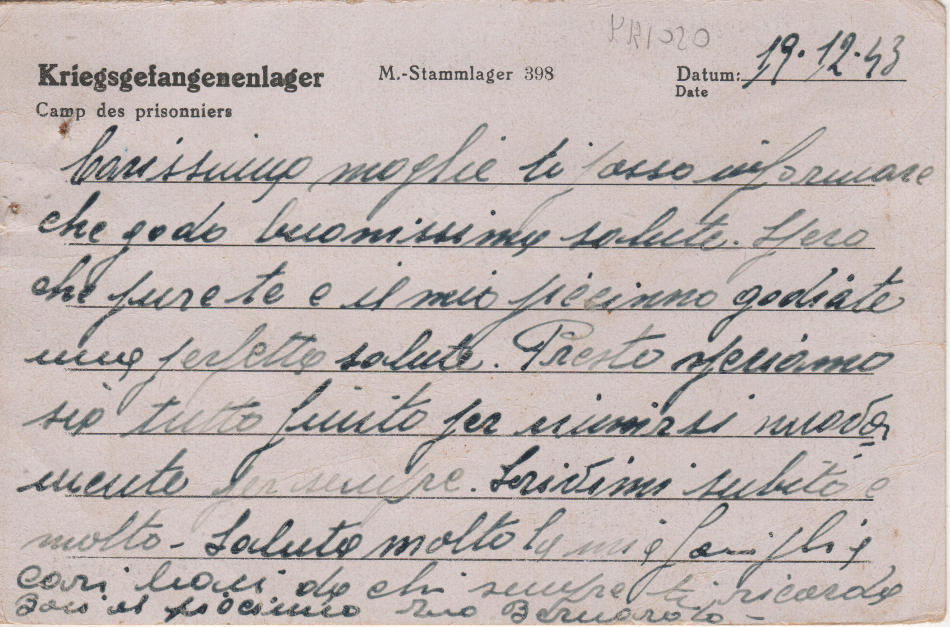 PR1020
Kriegsgefangenenlager M.-Stammlager 398 Datum: 19.12.43
Camp des prisonniers Date
Carissima moglie ti posso informare
che godo buonissima salute. Spero
che pure te e il mio piccinno godiate
una perfetta salute. Presto speriamo
sia tutto finito per riunirsi nuova
mente per sempre. Scrivimi subito e
molto - Saluta molto la mia famiglia
cari baci da chi sempre ti ricorda
Baci al piccinno tuo